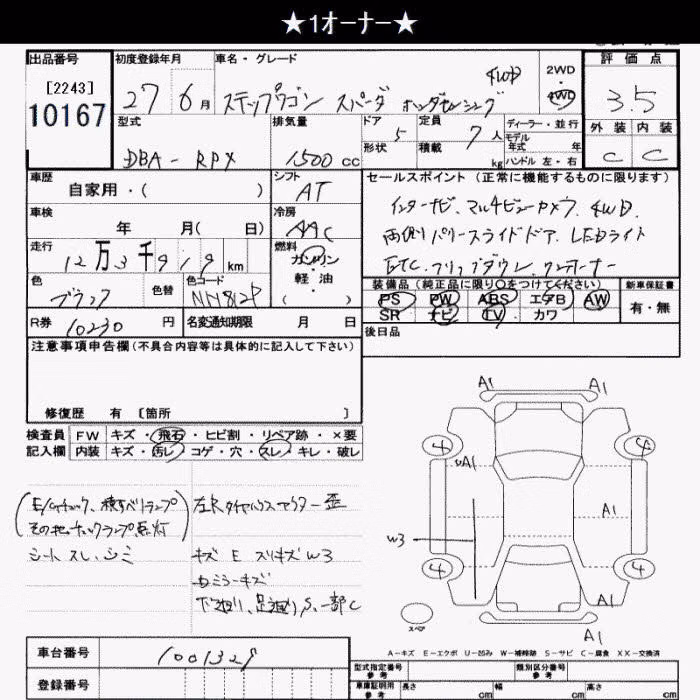 ★1オーナー★
出品番号 初度登録年月 車名・グレード 2WD 評価点
[2243] 4WD 4WD
10167 27 6月 ステップワゴン スパーダ ホンダセンシング 3.5
型式 排気量 ドア 定員 ディーラー・並行 外装 内装
5 7人 モデル年式 年式
DBA-RPX 1500cc 形状 積載 kg ハンドル 左・右 C C
車歴 シフト セールスポイント (正常に機能するものに限ります)
自家用・( ) AT インターナビ、マルチビューカメラ、4WD、
車検 冷房 両側パワースライドドア、LEDライト
年 月( 日) AAC ETC、フリップダウン、ワンオーナー
走行 燃料
12万3千919km ガソリン・軽油・( )
色 色替 色コード 装備品 (純正品に限り○をつけてください) 新車保証書
ブラック PS PW ABS エアB AW 有・無
R券 10230円 名変通知期限 月 日 SR ナビ TV カワ
注意事項申告欄(不具合内容等は具体的に記入して下さい) 後日品
修復歴 有 [箇所 ]
検査員 FW キズ・飛石・ヒビ割・リペア跡・×要
記入欄 内装 キズ・汚レ・コゲ・穴・スレ・キレ・破レ
(E/Gチェック、横すべりランプ
その他チェックランプ点灯)
シート スレ、シミ
キズ E スリキズ W3
ミラーキズ
下廻り、足廻りS、一部C
A1 A1
4 4
A1
W3
A1
4 4
A1
A1
スペア
A-キズ E-エクボ U-凹み W-補修跡 S-サビ C-腐食 XX-交換済
車台番号 1001329
登録番号
型式指定番号 参考 類別区分番号 参考
車庫証明用 参考 長さ cm 幅 cm 高さ cm